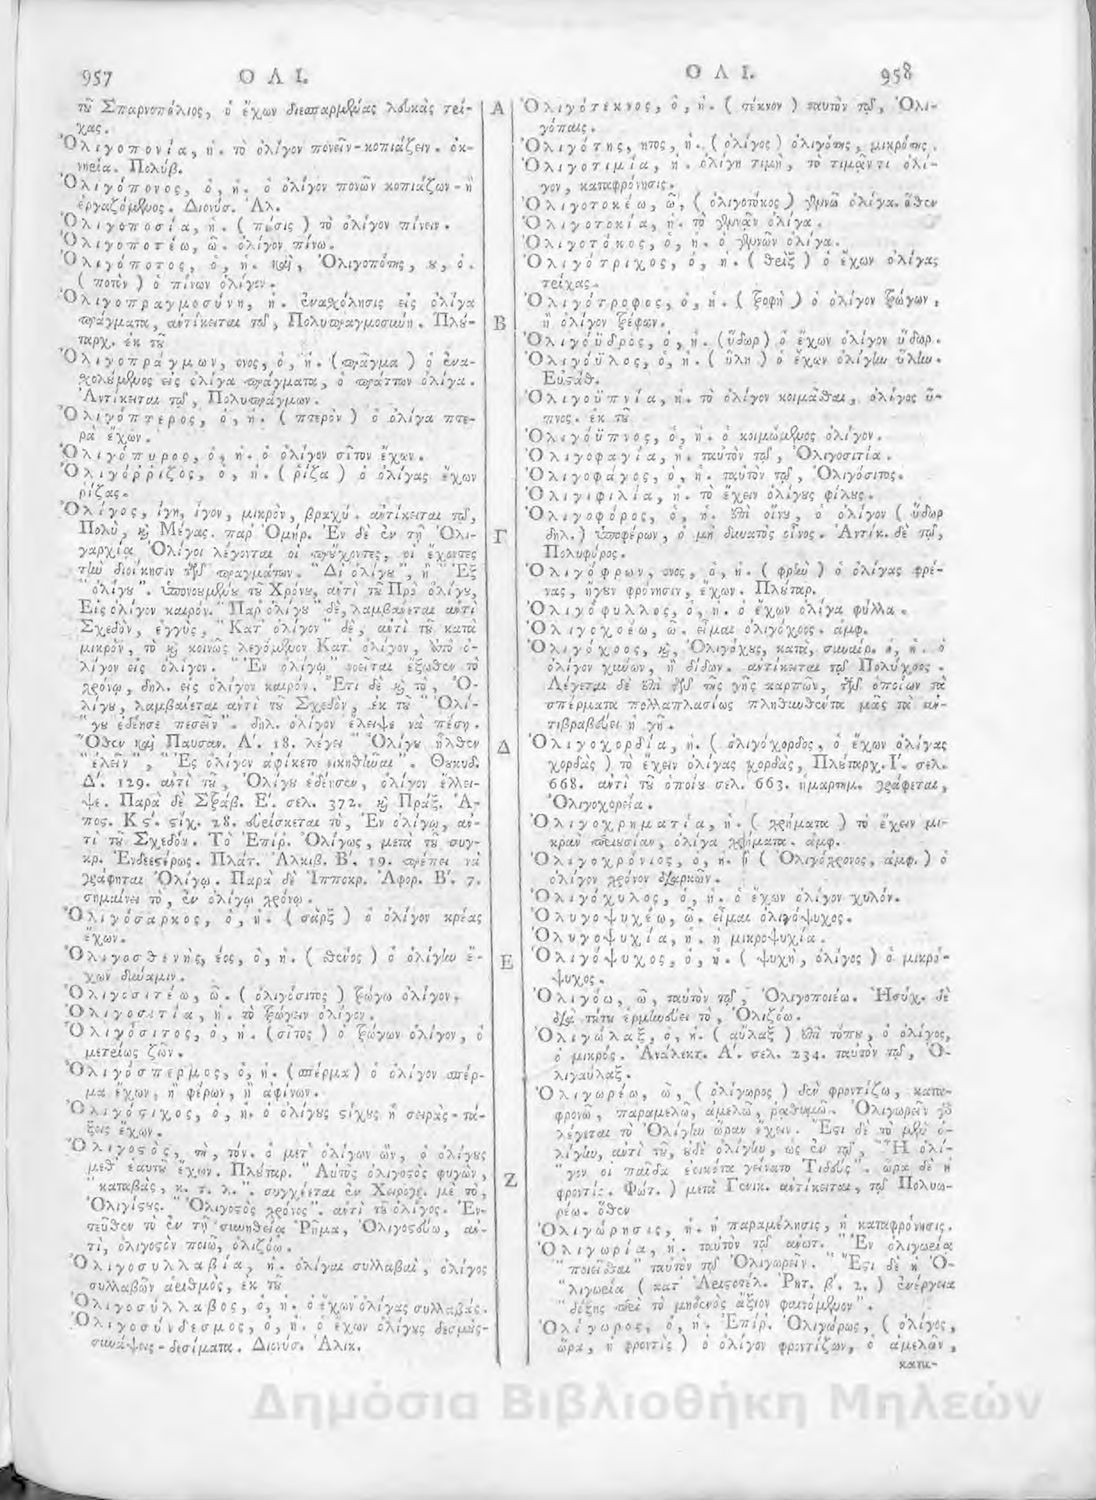 957 ΟΛΙ.
τοῦ Σπαρνοπόλιος, ὁ ἔχων διεσπαρμένας λευκὰς τρί-
χας.
Ὀλιγοπονία, ἡ. τὸ ὀλίγον πονεῖν-κοπιάζειν. ὀκ-
νηρία. Πολύβ.
Ὀλιγόπονος, ὁ, ἡ. ὁ ὀλίγον πονῶν κοπιάζων-ἢ
ἐργαζόμενος. Διονύσ. Ἁλ.
Ὀλιγοποσία, ἡ. (πόσις) τὸ ὀλίγον πίνειν.
Ὀλιγοποτέω, ῶ. ὀλίγον πίνω.
Ὀλιγόποτος, ὁ, ἡ. καὶ, Ὀλιγοπότης, ου, ὁ.
(ποτὸν) ὁ πίνων ὀλίγον.
Ὀλιγοπραγμοσύνη, ἡ. ἐνασχόλησις εἰς ὀλίγα
πράγματα, ἀντίκειται τῷ, Πολυπραγμοσύνη. Πλού-
ταρχ. ἐκ τοῦ
Ὀλιγοπράγμων, ονος, ὁ, ἡ. (πρᾶγμα) ὁ ἐνα-
σχολούμενος εἰς ὀλίγα πράγματα, ὁ πράττων ὀλίγα.
Ἀντίκειται τῷ, Πολυπράγμων.
Ὀλιγόπτερος, ὁ, ἡ. (πτερὸν) ὁ ὀλίγα πτε-
ρὰ ἔχων.
Ὀλιγόπυρος, ὁ, ἡ. ὁ ὀλίγον σῖτον ἔχων.
Ὀλιγόῤῥιζος, ὁ, ἡ. (ῥίζα) ὁ ὀλίγας ἔχων
ῥίζας.
Ὀλίγος, ίγη, ίγον, μικρὸν, βραχύ. ἀντίκειται τῷ,
Πολὺ, καὶ Μέγας. παρ' Ὁμήρ. Ἐν δὲ ἐν τῇ Ὀλι-
γαρχίᾳ Ὀλίγοι λέγονται οἱ προύχοντες, οἱ ἔχοντες
τὴν διοίκησιν τῶν πραγμάτων. "Δι' ὀλίγου", ἢ "Ἐξ
"ὀλίγου". ὑπονουμένου τοῦ Χρόνου, αὐτὶ τοῦ Πρὸ ὀλίγου,
Εἰς ὀλίγον καιρόν. "Παρ' ὀλίγου" δὲ, λαμβάνεται ἀντὶ
Σχεδὸν, ἐγγύς, "Κατ' ὀλίγον" δὲ, ἀντὶ τοῦ κατὰ
μικρὸν, τὸ καὶ κοινῶς λεγόμενον Κατ' ὀλίγον, ἀπὸ ὀ-
λίγον εἰς ὀλίγον. "Ἐν ὀλίγῳ" νοεῖται ἔξωθεν τὸ
χρόνῳ, δηλ. εἰς ὀλίγον καιρόν. Ἔτι δὲ καὶ τὸ, Ὀ-
λίγου, λαμβάνεται ἀντὶ τοῦ Σχεδὸν, ἐκ τοῦ "Ὀλί-
"γου ἐδέησε πεσεῖν". δηλ. ὀλίγον ἔλειψε νὰ πέσῃ.
Ὅθεν καὶ Παυσαν. Α'. 18. λέγει "Ὀλίγου ἦλθεν
"ἐλεῖν", "Ἐς ὀλίγον ἀφίκετο νικηθῆναι". Θουκυδ.
Δ'. 129. ἀντὶ τοῦ, Ὀλίγου ἐδέησεν, ὀλίγον ἔλλει-
ψε. Παρὰ δὲ Στράβ. Ε'. σελ. 372. καὶ Πράξ. Ἀ-
πος. Κς'. στίχ. 28. εὑρίσκεται τὸ, Ἐν ὀλίγῳ, ἀν-
τὶ τοῦ Σχεδόν. Τὸ Ἐπίρ. Ὀλίγως, μετὰ τοῦ συγ-
κρ. Ἐνδεεστέρως. Πλάτ. Ἀλκιβ. Β'. 19. πρέπει νὰ
γράφηται Ὀλίγῳ. Παρὰ δὲ Ἱπποκρ. Ἀφορ. Β'. 7.
σημαίνει τὸ, ἐν ὀλίγῳ χρόνῳ.
Ὀλιγόσαρκος, ὁ, ἡ. (σὰρξ) ὁ ὀλίγον κρέας
ἔχων.
Ὀλιγοσθενὴς, έος, ὁ, ἡ. (σθένος) ὁ ὀλίγην ἔ-
χων δύναμιν.
Ὀλιγοσιτέω, ῶ. (ὀλιγόσιτος) τρώγω ὀλίγον.
Ὀλιγοσιτία, ἡ. τὸ τρώγειν ὀλίγον.
Ὀλιγόσιτος, ὁ, ἡ. (σῖτος) ὁ τρώγων ὀλίγον, ὁ
μετρίως ζῶν.
Ὀλιγόσπερμος, ὁ, ἡ. (σπέρμα) ὁ ὀλίγον σπέρ-
μα ἔχων, ἢ φέρων, ἢ ἀφίνων.
Ὀλιγόστιχος, ὁ, ἡ. ὁ ὀλίγους στίχους ἢ σειρὰς-τά-
ξεις ἔχων.
Ὀλιγοστὸς, τὴ, τόν. ὁ μετ' ὀλίγων ὢν, ὁ ὀλίγους
μεθ' ἑαυτοῦ ἔχων. Πλούταρ. "Αὐτὸς ὀλιγοστὸς φυγὼν,
"καταβὰς, κ. τ. λ.". συγχέεται ἐν Χειρογρ. μὲ τὸ,
Ὀλιγίστους. "Ὀλιγοστὸς χρόνος". ἀντὶ τοῦ ὀλίγος. Ἐν-
τεῦθεν τὸ ἐν τῇ συνηθείᾳ Ῥῆμα, Ὀλιγοστεύω, ἀν-
τὶ, ὀλιγοστὸν ποιῶ, ὀλιζόω.
Ὀλιγοσυλλαβία, ἡ. ὀλίγαι συλλαβαὶ, ὀλίγος
συλλαβῶν ἀριθμὸς, ἐκ τοῦ
Ὀλιγοσύλλαβος, ὁ, ἡ. ὁ ἔχων ὀλίγας συλλαβάς.
Ὀλιγοσύνδεσμος, ὁ, ἡ. ὁ ἔχων ὀλίγους δεσμοὺς-
συνάψεις-δεσίματα. Διονύσ. Ἁλικ.
Α
Β
Γ
Δ
Ε
Ζ
ΟΛΙ. 958
Ὀλιγότεκνος, ὁ, ἡ. (τέκνον) ταυτὸν τῷ, Ὀλι-
γόπαις.
Ὀλιγότης, ητος, ἡ. (ὀλίγος) ὀλιγότης, μικρότης.
Ὀλιγοτιμία, ἡ. ὀλίγη τιμὴ, τὸ τιμᾷν τι ὀλί-
γον, καταφρόνησις.
Ὀλιγοτοκέω, ῶ, (ὀλιγοτόκος) γεννῶ ὀλίγα. ὅθεν
Ὀλιγοτοκία, ἡ. τὸ γεννᾷν ὀλίγα.
Ὀλιγοτόκος, ὁ, ἡ. ὁ γεννῶν ὀλίγα.
Ὀλιγότριχος, ὁ, ἡ. (θρὶξ) ὁ ἔχων ὀλίγας
τρίχας.
Ὀλιγότροφος, ὁ, ἡ. (τροφὴ) ὁ ὀλίγον τρώγων,
ἢ ὀλίγον τρέφων.
Ὀλιγόϋδρος, ὁ, ἡ. (ὕδωρ) ὁ ἔχων ὀλίγον ὕδωρ.
Ὀλιγόϋλος, ὁ, ἡ. (ὕλη) ὁ ἔχων ὀλίγην ὕλην.
Εὐστάθ.
Ὀλιγοϋπνία, ἡ. τὸ ὀλίγον κοιμᾶσθαι, ὀλίγος ὕ-
πνος. ἐκ τοῦ
Ὀλιγόϋπνος, ὁ, ἡ. ὁ κοιμώμενος ὀλίγον.
Ὀλιγοφαγία, ἡ. ταυτὸν τῷ, Ὀλιγοσιτία.
Ὀλιγοφάγος, ὁ, ἡ. ταὐτὸν τῷ, Ὀλιγόσιτος.
Ὀλιγιφιλία, ἡ. τὸ ἔχειν ὀλίγους φίλους.
Ὀλιγοφόρος, ὁ, ἡ. ἐπὶ οἴνου, ὁ ὀλίγον (ὕδωρ
δηλ.) ὑποφέρων, ὁ μὴ δυνατὸς οἶνος. Ἀντίκ. δὲ τῷ,
Πολυφόρος.
Ὀλιγόφρων, ονος, ὁ, ἡ. (φρὴν) ὁ ὀλίγας φρέ-
νας, ἤγουν φρόνησιν, ἔχων. Πλούταρ.
Ὀλιγόφυλλος, ὁ, ἡ. ὁ ἔχων ὀλίγα φύλλα.
Ὀλιγοχοέω, ῶ. εἶμαι ὀλιγόχοος. ἀμφ.
Ὀλιγόχοος, καὶ, Ὀλιγόχους, κατὰ, συναίρ. ὁ, ἡ. ὁ
ὀλίγον χύνων, ἢ δίδων. ἀντίκειται τῷ Πολύχοος.
Λέγεται δὲ ἐπὶ τῶν τῆς γῆς καρπῶν, τῶν ὁποίων τὰ
σπέρματα πολλαπλασίως πληθύνοντα μᾶς τὰ ἀν-
τιβραβεύει ἡ γῆ.
Ὀλιγοχορδία, ἡ. (ὀλιγόχορδος, ὁ ἔχων ὀλίγας
χορδὰς) τὸ ἔχειν ὀλίγας χορδὰς, Πλούταρχ. Ι'. σελ.
668. ἀντὶ τοῦ ὁποίου σελ. 663. ἡμαρτημ. γράφεται,
Ὀλιγοχορεία.
Ὀλιγοχρηματία, ἡ. (χρήματα) τὸ ἔχειν μι-
κρὰν περιουσίαν, ὀλίγα χρήματα. ἀμφ.
Ὀλιγοχρόνιος, ὁ, ἡ. ἢ (Ὀλιγόχρονος, ἀμφ.) ὁ
ὀλίγον χρόνον διαρκῶν.
Ὀλιγόχυλος, ὁ, ἡ. ὁ ἔχων ὀλίγον χυλόν.
Ὀλυγοψυχέω, ῶ. εἶμαι ὀλιγόψυχος.
Ὀλυγοψυχία, ἡ. ἡ μικροψυχία.
Ὀλιγόψυχος, ὁ, ἡ. (ψυχὴ, ὀλίγος) ὁ μικρό-
ψυχος.
Ὀλιγόω, ῶ, ταυτὸν τῷ, Ὀλιγοποιέω. Ἡσύχ. δὲ
διὰ τούτου ἑρμηνεύει τὸ, Ὀλιζόω.
Ὀλιγώλαξ, ὁ, ἡ. (αὖλαξ) ἐπὶ τόπου, ὁ ὀλίγος,
ὁ μικρός. Ἀνάλεκτ. Α'. σελ. 234. ταυτὸν τῷ, Ὀ-
λιγαύλαξ.
Ὀλιγωρέω, ῶ, (ὀλίγωρος) δὲν φροντίζω, κατα-
φρονῶ, παραμελῶ, ἀμελῶ, ῥᾳθυμῶ. Ὀλιγωρεῖν γὰρ
λέγεται τὸ Ὀλίγην ὥραν ἔχειν. Ἔστι δὲ τὸ μὲν ὀ-
λίγην, ἀντὶ τοῦ, οὐδὲ ὀλίγην, ὡς ἐν τῷ, "Ἦ ὀλί-
"γον οἱ παῖδα ἐοικότα γείνατο Τυδεύς". ὥρα δὲ ἡ
φροντίς. Φώτ.) μετὰ Γενικ. ἀντίκειται, τῷ Πολυω-
ρέω. ὅθεν
Ὀλιγώρησις, ἡ. ἡ παραμέλησις, ἡ καταφρόνησις.
Ὀλιγωρία, ἡ. ταυτὸν τῷ ἀνωτ. "Ἐν ὀλιγωρίᾳ
"ποιεῖσθαι" ταυτὸν τῷ Ὀλιγωρεῖν. "Ἔστι δὲ ἡ Ὀ-
"λιγωρία (κατ' Ἀριστοτέλ. Ῥητ. β'. 2.) ἐνέργεια
"δόξης περὶ τὸ μηδενὸς ἄξιον φαινόμενον".
Ὀλίγωρος, ὁ, ἡ. Ἐπίρ. Ὀλιγώρως, (ὀλίγος,
ὥρα, ἡ φροντὶς) ὁ ὀλίγον φροντίζων, ὁ ἀμελῶν,
κατα-
Δημόσια Βιβλιοθήκη Μηλεών